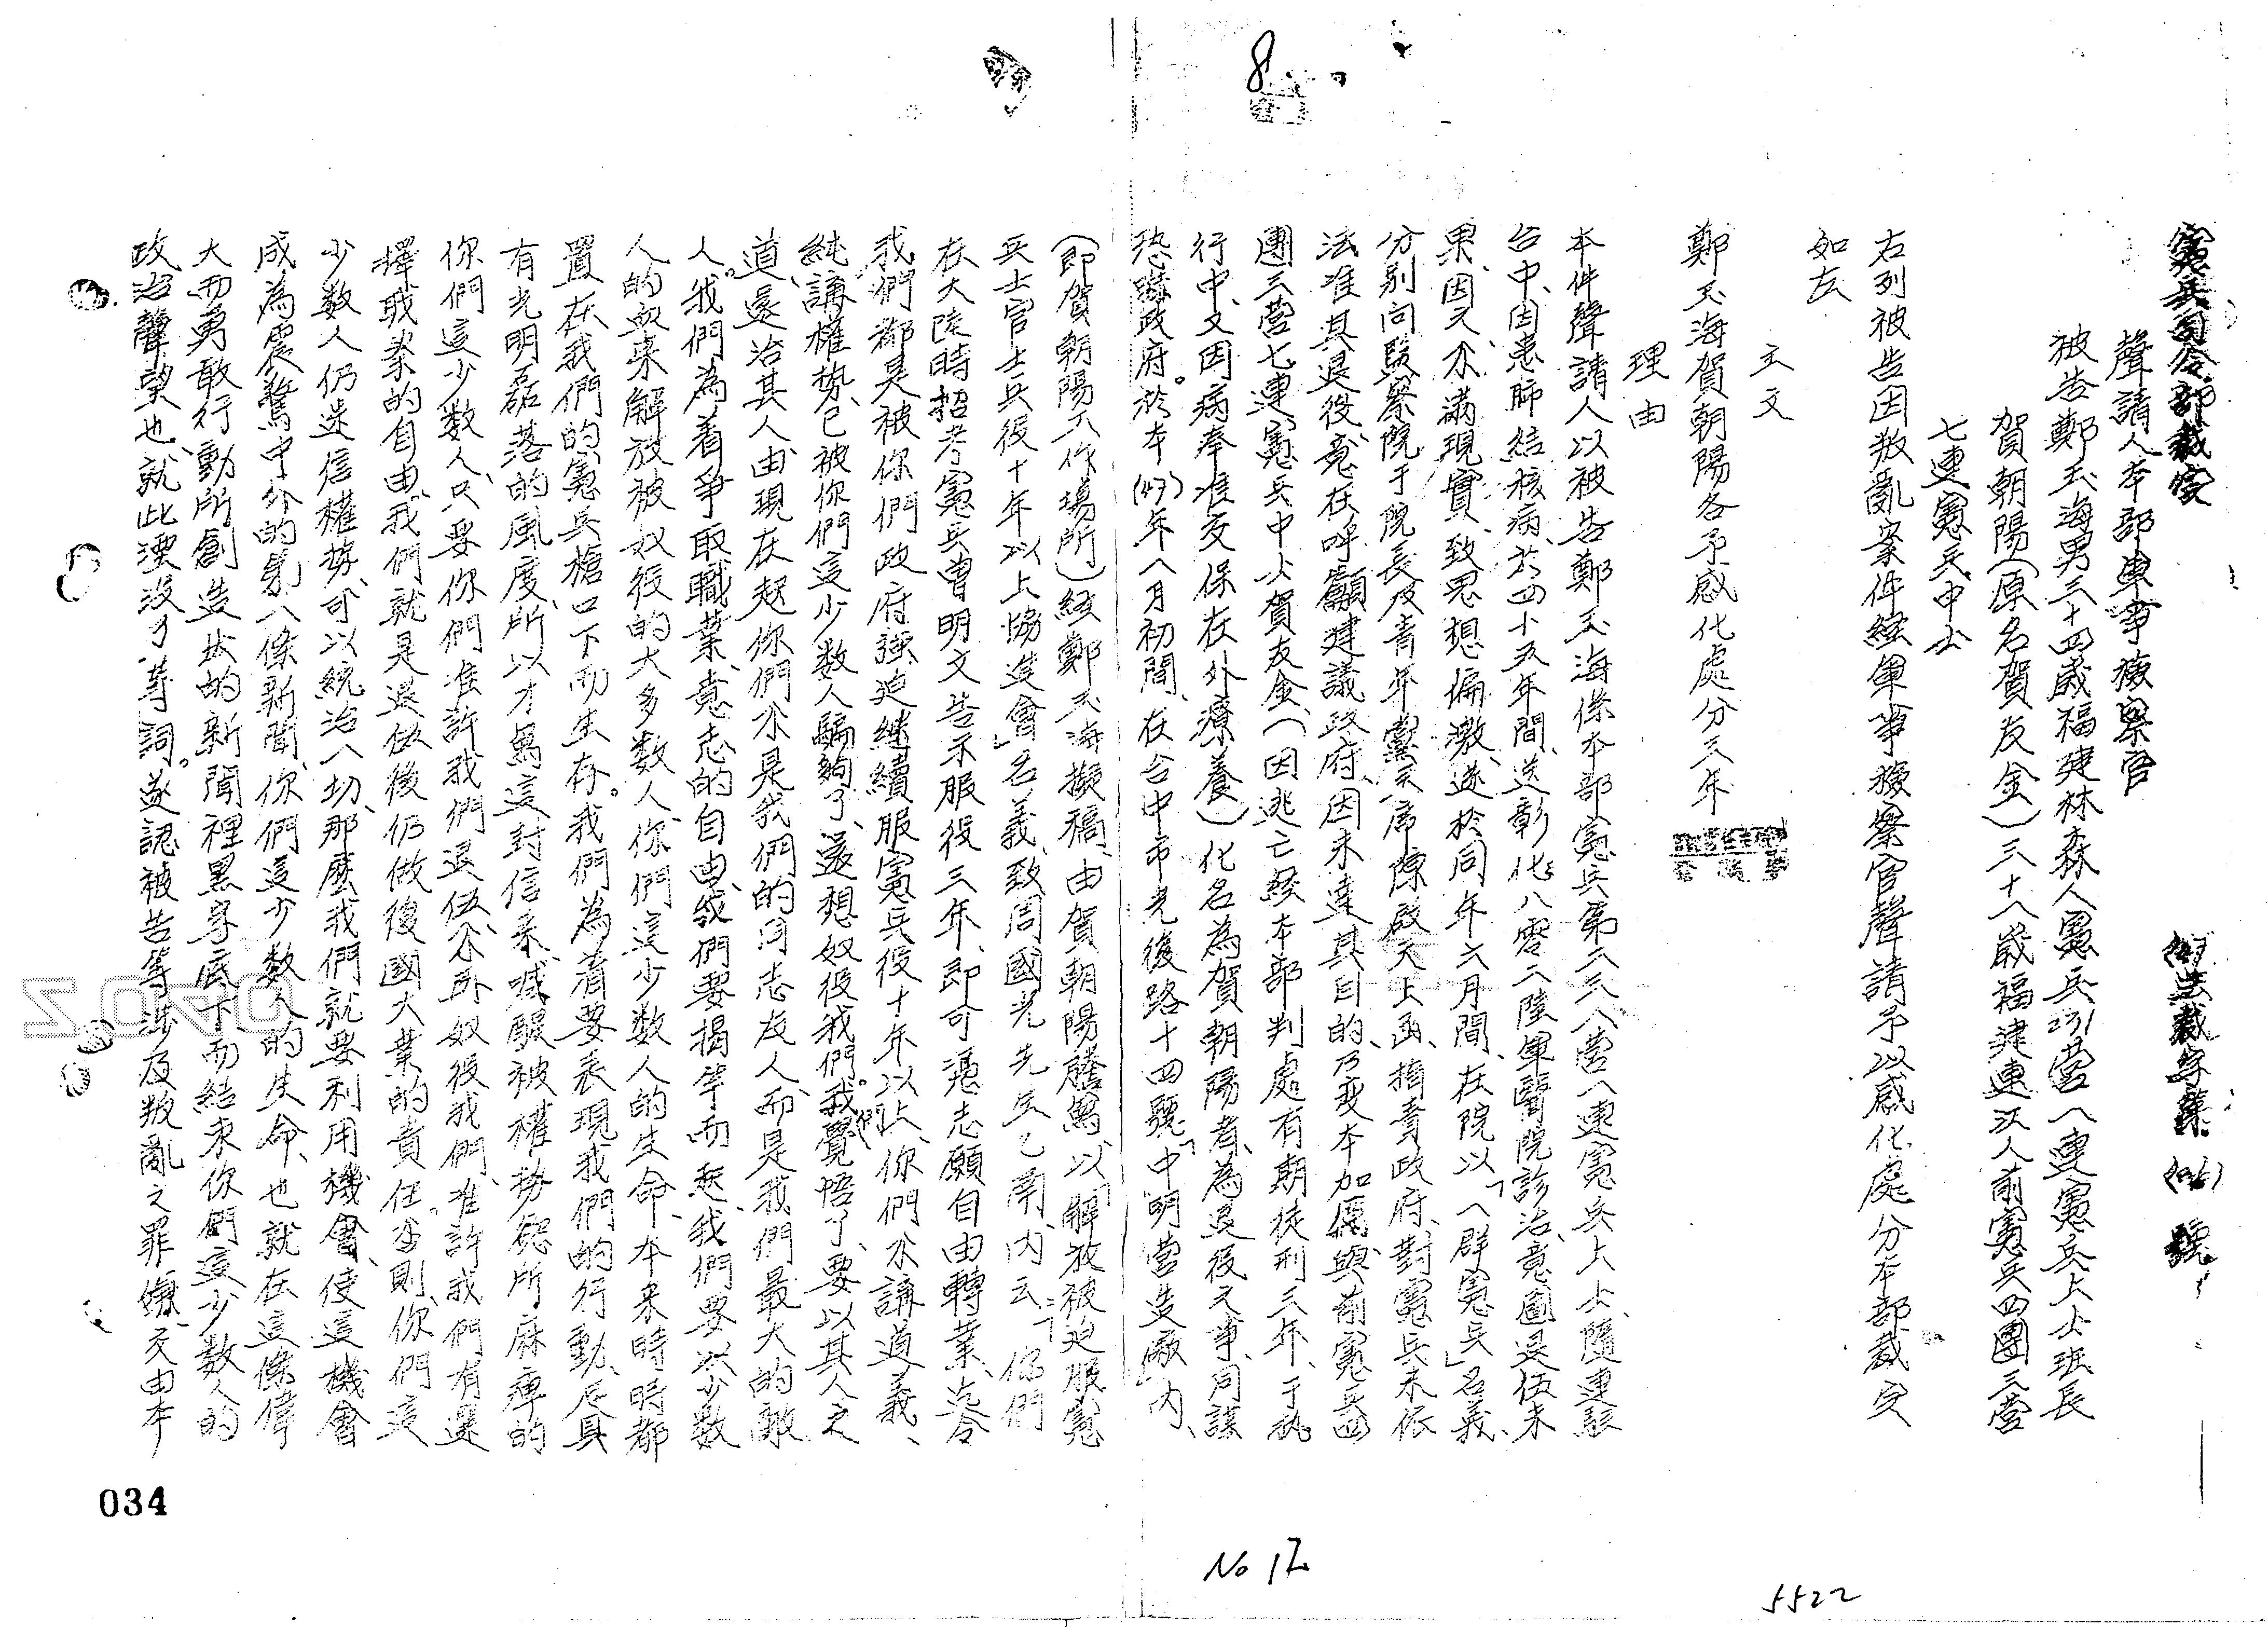 8
憲兵司令部裁定
(47)法裁字第(036)號
聲請人本部軍事檢察官
被告鄭玉海男三十四歲福建林森人憲兵231營八連憲兵上士班長
賀朝陽(原名賀友金)三十八歲福建連江人前憲兵四團三營
七連憲兵中士
右列被告因叛亂案件經軍事檢察官聲請予以感化處分本部裁定
如左
主文
鄭玉海賀朝陽各予感化處分三年
理由
本件聲請人以被告鄭玉海係本部憲兵第二三八營八連憲兵上士、隨連駐
台中、因患肺結核病、於四十五年間、送彰化八零二陸軍醫院診治、意圖退伍未
果、因又不滿現實、致思想偏激、遂於同年六月間、在院以「一群憲兵」名義、
分別向監察院于院長及青年黨主席陳啟天上函、指責政府、對憲兵未依
法准其退役、意在呼籲建議政府、因未達其目的、乃變本加厲與前憲兵四
團三營七連憲兵中士賀友金、(因逃亡經本部判處有期徒刑三年、于執
行中、又因病奉准交保在外療養)化名為賀朝陽者、為退役之事、同謀
恐嚇政府。於本(47)年八月初間、在台中市光復路十四號「中明營造廠」內、
(即賀朝陽工作場所)經鄭玉海擬稿、由賀朝陽謄寫、以「解放被迫服憲
兵士官士兵役十年以上協進會」名義、致周國光先生乙函、內云：「你們
在大陸時招考憲兵曾明文告示服役三年、即可憑志願自由轉業、迄今
我們都是被你們政府強迫繼續服憲兵役十年以上、你們不講道義、
純講權勢、已被你們這少數人騙夠了、還想奴役我們。我們覺悟了、要以其人之
道、還治其人、由現在起你們不是我們的同志友人、而是我們最大的敵
人。我們為着爭取職業、意志的自由、我們要揭竿而起、我們要以少數
人的血來解放被奴役的大多數人、你們這少數人的生命、本來時時都
置在我們的憲兵槍口下而生存。我們為着要表現我們的行動、是具
有光明磊落的風度、所以才寫這封信來、喊醒被權勢慾所麻痺的
你們這少數人、只要你們准許我們退伍、不再奴役我們、准許我們有選
擇職業的自由、我們就是退伍後仍做復國大業的責任、否則、你們這
少數人仍迷信權勢、可以統治一切、那麼我們就要利用機會、使這機會
成為震驚中外的第一條新聞、你們這少數人的生命、也就在這條偉
大而勇敢行動所創造出的新聞裡黑字底下而結束你們這少數人的
政治聲望也就此湮沒了」等詞。遂認被告等涉及叛亂之罪嫌、交由本
034
No 12
5522